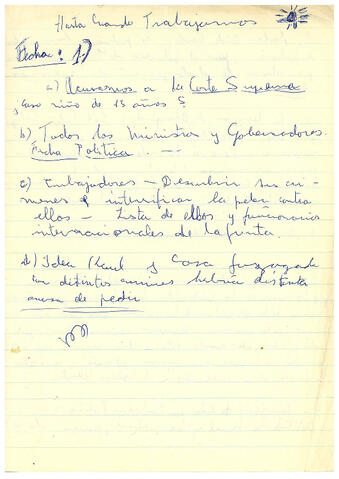 Hasta Cuando Trabajamos
Fecha: 1)
a) Recurramos a la Corte Suprema
¿caso niño de 13 años?
b) Todos los Ministros y Gobernadores.
Ficha Política ... —
c) Embajadores — Descubrir sus crí-
menes e intensificar la pelea contra
ellos — Lista de ellos y funcionarios
internacionales de la Junta.
d) Idea y Casa
con distintos habría distinta
de pedir